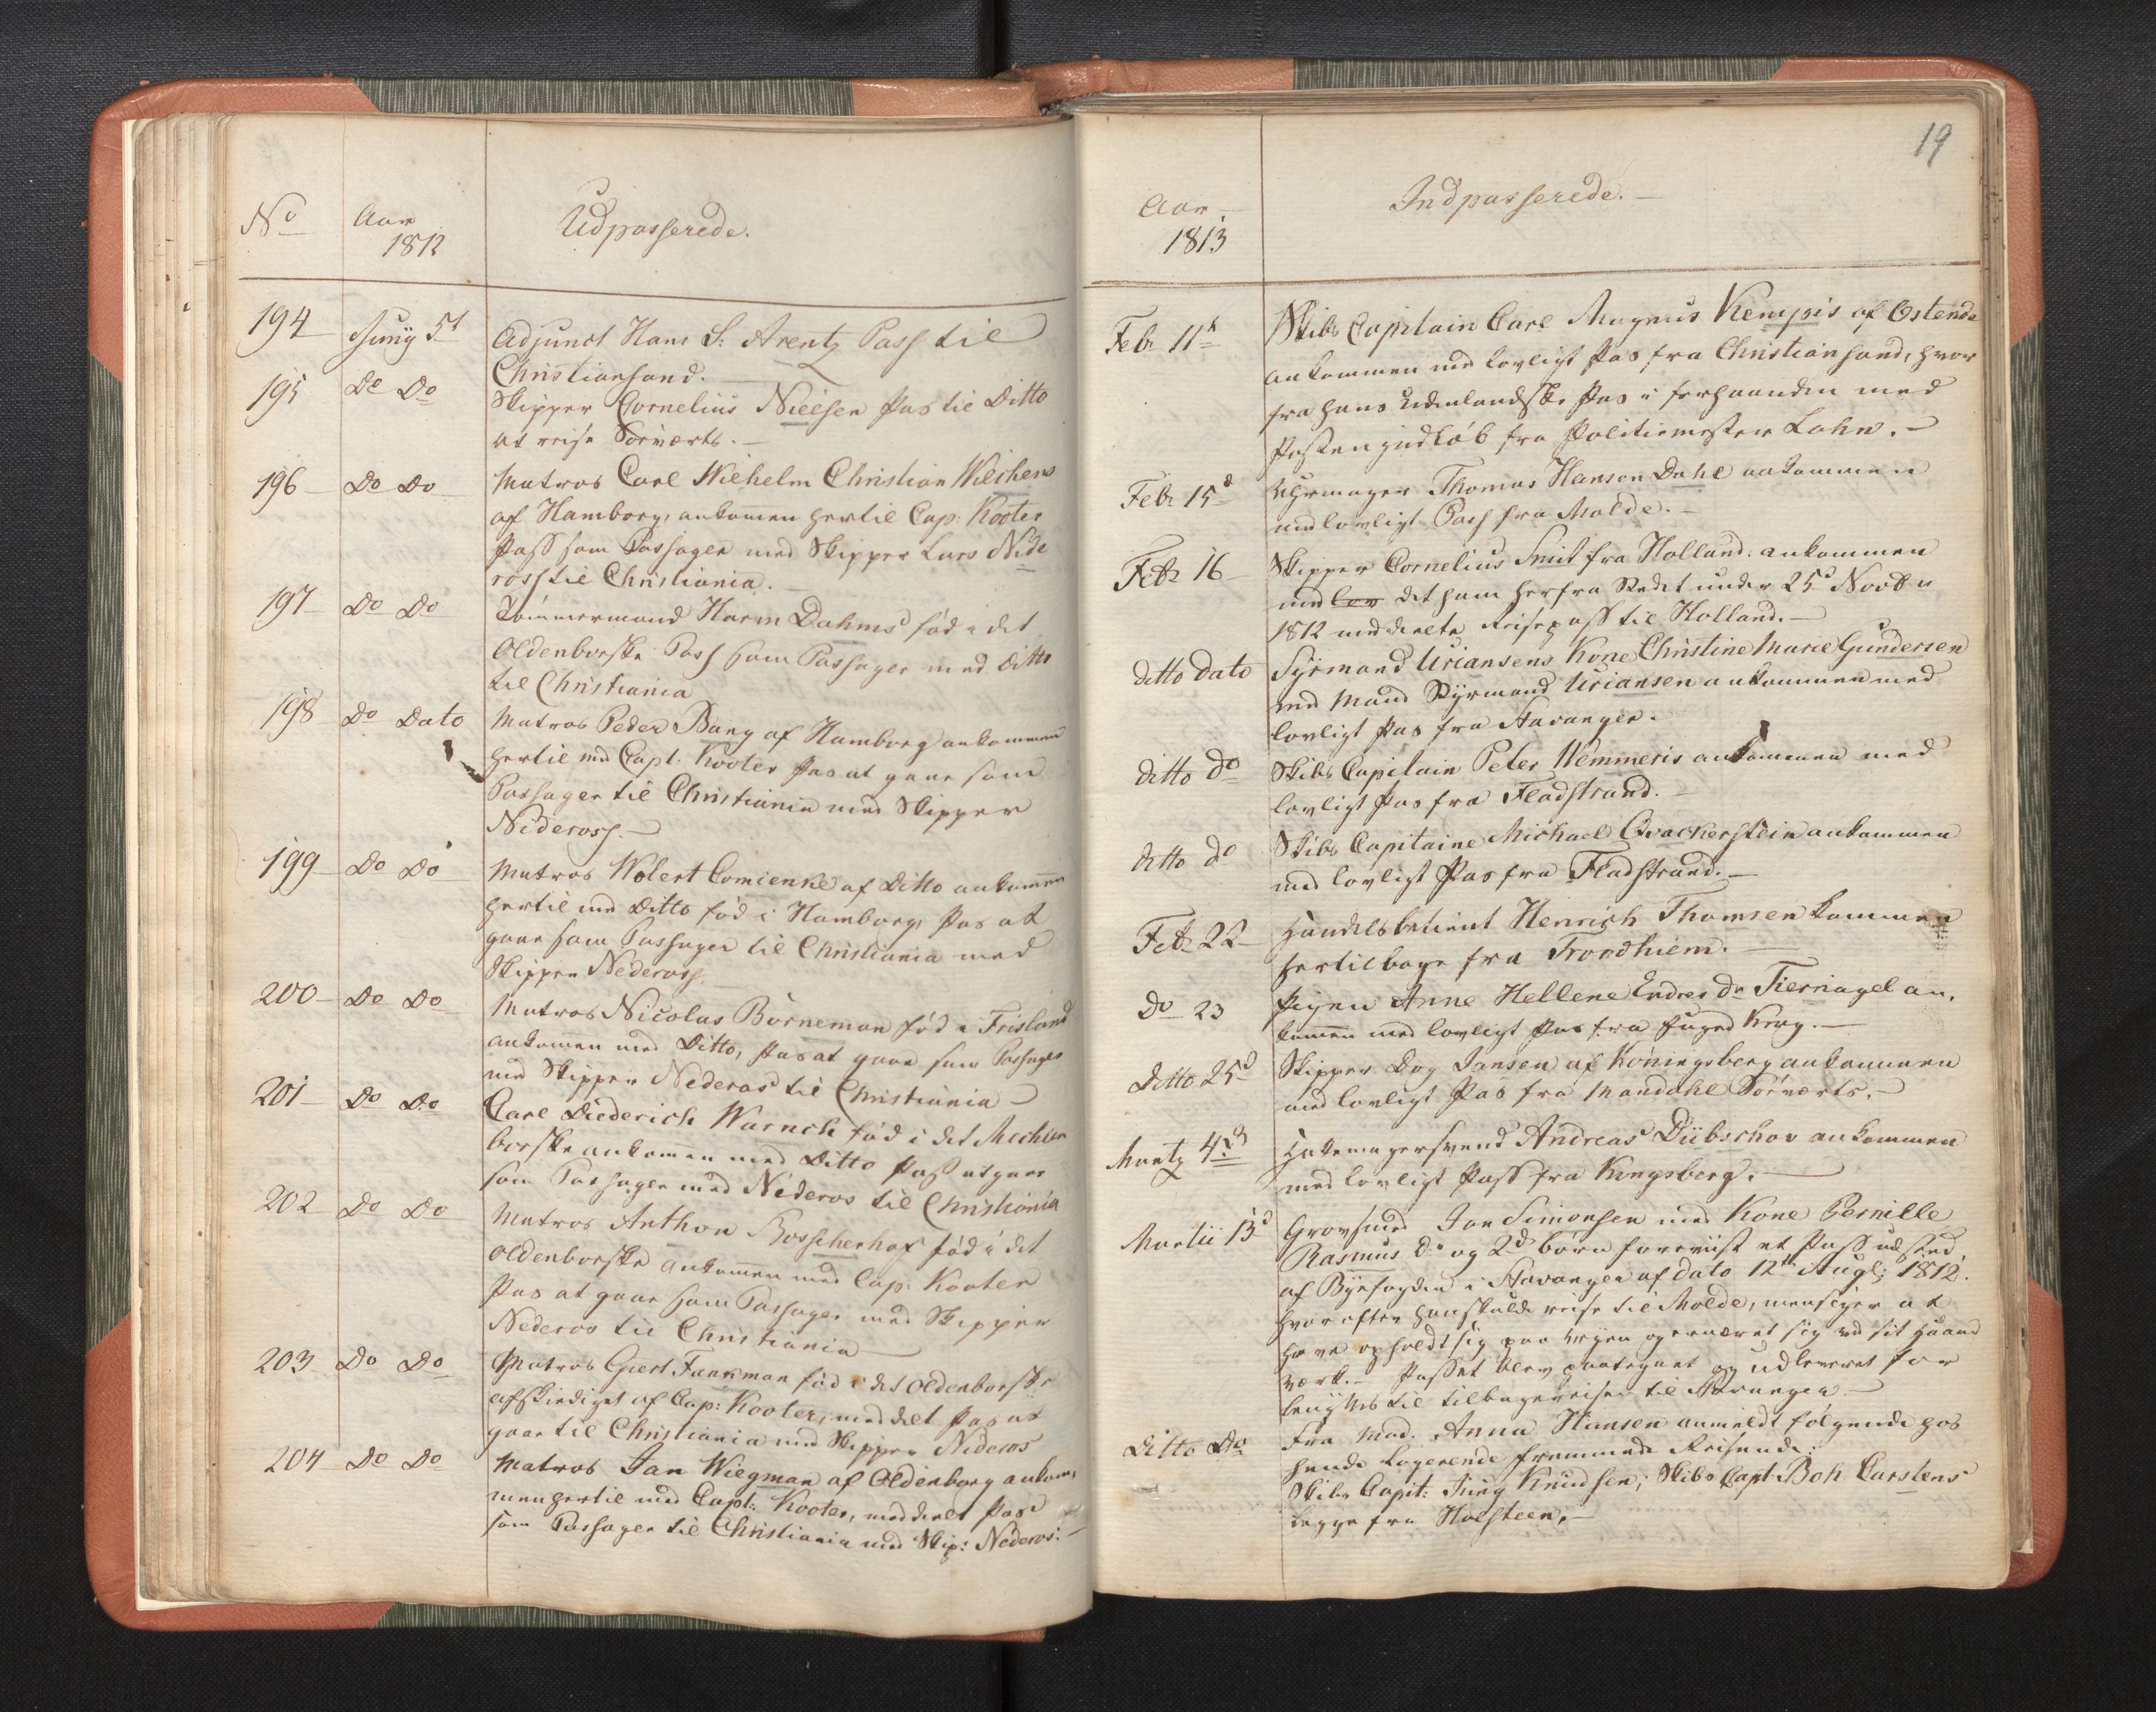 No Aar 1812 Udpasserede.
194 Junÿ 5t Adjunct Hans S: Arentz Pass til
Christiansand.
195 Do Do Skipper Cornelius Nielsen Pas til Ditto
at reise Søeværts.
196 Do Do Matros Carl Wilhelm Christian Wilchens
af Hamborg, ankommen hertil Cap: Kooter
Pass som Passager med Skipper Lars Nide
ross til Christiania.
197 Do Do Tømmermand Harm Dahms fød i det
Oldenborske Pass som Passager med Ditto
til Christiania
198 Do Dato Matros Peder Bang af Hamborg ankommen
hertil med Capt: Kooter Pas at gaae som
Passager til Christiania med Skipper
Nideross.
199 Do Do Matros Wolert Comienke af Ditto ankommen
hertil med Ditto fød i Hamborg, Pas at
gaae som Passager til Christiania med
Skipper Nedeross.
200 Do Do Matros Nicolas Børneman fød i Frisland
ankommen med Ditto, Pas at gaae som Passager
med Skipper Nederos til Christiania
201 Do Do Carl Diederich Warnch fød i det Mechlen
borske ankommen med Ditto Pass at gaae
som Passager med Nederos til Christiania
202 Do Do Matros Anthon Bosscherhof fød i det
Oldenborske ankommen med Cap: Kooter
Pas at gaae som Passager med Skipper
Nederos til Christiania
203 Do Do Matros Giert Funkman fød i det Oldenborske
afskediget af Cap: Kooter, meddelt Pas at
gaae til Christiania med Skipper Nideros
204 Do Do Matros Jan Wiegman af Oldenborg ankom,
men hertil med Capt: Kooter, meddeelt Pas
som Passager til Christiania med Skip: Nederos.
19
Aar 1813 Indpasserede.
Febr 11t Skibs Capitain Carl Magnus Kempis af Ostende
ankommen med lovligt Pas fra Christiansand, hvor
fra hans udenlandske Pas i forhaanden med
Posten indløb fra Politiemester Lohn.
Febr 15d Uhrmager Thomas Hansen Dahl ankommen
med lovligt Pass fra Molde.
Febr 16 Skipper Cornelius Smit fra Holland. ankommen
med lov det ham herfra Stedet under 25d Novbr
1812 meddeelte Reisepass til Holland.
ditto dato Styrmand Uriansens Kone Christine Marie Gundersen
med Mand Styrmand Uriansen ankommen med
lovligt Pas fra Stavanger.
ditto do Skibs Capitain Peter Wemmeris ankommen med
lovligt Pas fra Fladstrand.
ditto do Skibs Capitaine Michael Qvackerstein ankommen
med lovligt Pas fra Fladstrand.
Febr 22 Handelsbetient Henrich Thomsen kommen
her tilbage fra Trondhiem.
Do 23 Pigen Anne Hellene Endres dr Tiernagel an,
kommen med lovligt Pas fra Foged Krog.
Ditto 25d Skipper Dog Jansen af Køningsberg ankommen
med lovligt Pas fra Mandahl Søeværts.
Martz 4de Hatemagersvend Andreas Dübschov ankommen
med lovligt Pass fra Kongsberg.
Martii 13d Grovsmed Jan Simonsen med Kone Pernille
Rasmus dr og 2d børn foreviist et Pass udsted,
af Byefogden i Stavanger af dato 12te Augl: 1812.
hvorefter han skulde reise til Molde, men siger at
have opholdt sig paa Veyen og ernæret sig ved sit Haand
værk. Passet blev paategnet og udleveret for
til tilbagereisen til Stavanger.
Ditto Do Fra Mad. Anna Hansen anmeldt følgende hos
hende logerende fremmede Reisende:
Skibs Capit: Jurg Knudsen; Skibs Capt: Boh Carstens
begge fra Holsteen.